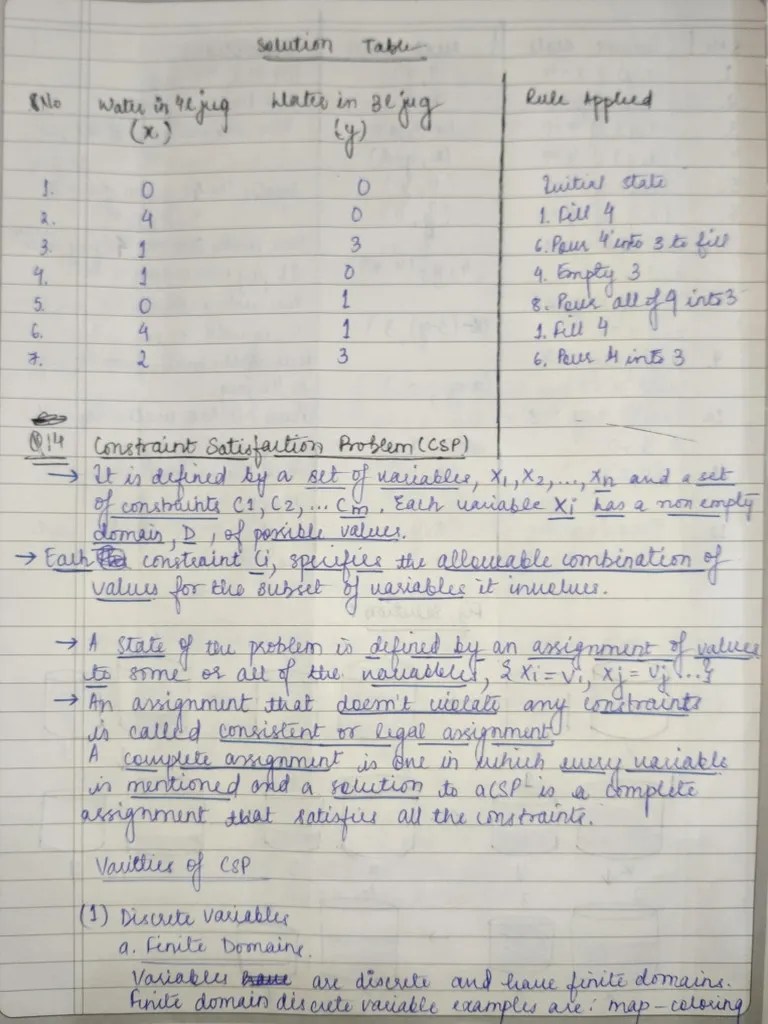 Solution Table
S.No Water in 4l jug Water in 3l jug Rule Applied
(x) (y)
1. 0 0 Initial State
2. 4 0 1. Fill 4
3. 1 3 6. Pour 4 into 3 to fill
4. 1 0 4. Empty 3
5. 0 1 8. Pour all of 4 into 3
6. 4 1 1. Fill 4
7. 2 3 6. Pour 4 into 3
Q14 Constraint Satisfaction Problem (CSP)
→ It is defined by a set of variables, X1, X2, ..., Xn and a set
of constraints C1, C2, ... Cm. Each variable Xi has a non empty
domain, D, of possible values.
→ Each constraint Ci, specifies the allowable combination of
values for the subset of variables it involves.
→ A state of the problem is defined by an assignment of values
to some or all of the variables, { Xi = Vi, Xj = Vj ...}
→ An assignment that doesn't violate any constraints
is called consistent or legal assignment.
A complete assignment is one in which every variable
is mentioned and a solution to a CSP is a complete
assignment that satisfies all the constraints.
Varities of CSP
(1) Discrete Variables
a. Finite Domains.
Variables are discrete and have finite domains.
Finite domain discrete variable examples are: map-coloring